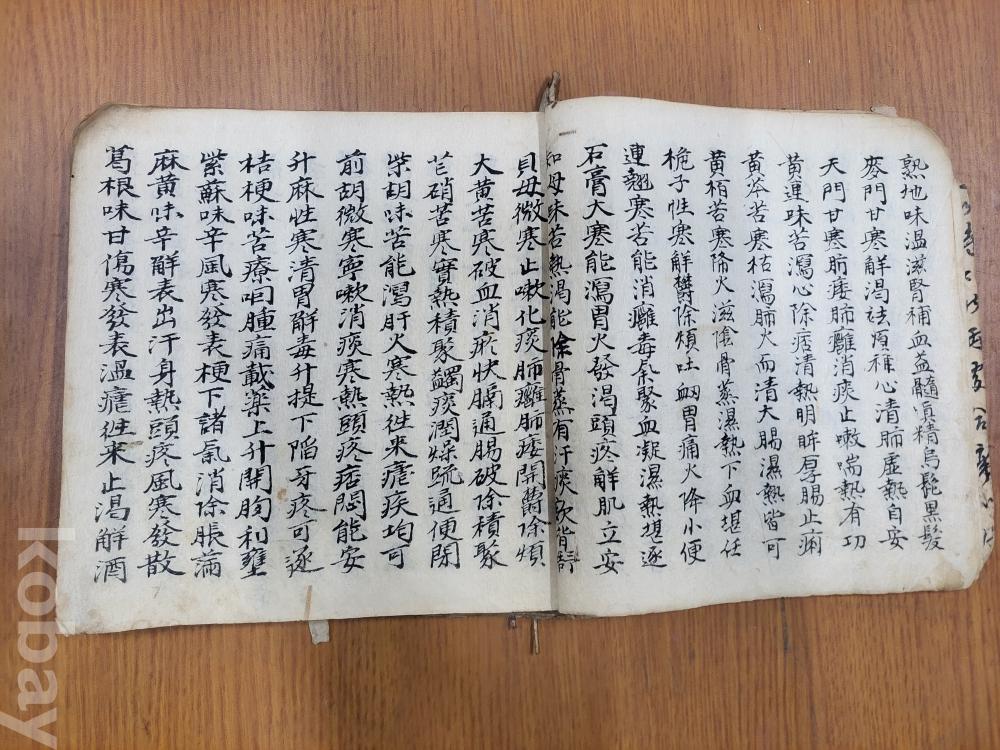 熟地味溫滋腎補血益髓塡精烏髭黑髮
麥門甘寒解渴祛煩補心清肺虛熱自安
天門甘寒肺痿肺癰消痰止嗽喘熱有功
黃連味苦瀉心除痞清熱明眸厚腸止痢
黃芩苦寒枯瀉肺火而清大腸濕熱皆可
黃栢苦寒降火滋陰骨蒸濕熱下血堪任
梔子性寒解鬱除煩吐衂胃痛火降小便
連翹寒苦能消癰毒氣聚血凝濕熱堪逐
石膏大寒能瀉胃火發渴頭疼解肌立安
知母味苦熱渴能除骨蒸有汗痰咳皆舒
貝母微寒止嗽化痰肺癰肺痿開鬱除煩
大黃苦寒破血消瘀快膈通腸破除積聚
芒硝苦寒實熱積聚蠲痰潤燥疏通便閉
柴胡味苦能瀉肝火寒熱徃来瘧疾均可
前胡微寒寧嗽消痰寒熱頭疼痞悶能安
升麻性寒清胃解毒升提下陷牙疼可逐
桔梗味苦療咽腫痛載藥上升開胸利壅
紫蘇味辛風寒發表梗下諸氣消除脹滿
麻黃味辛解表出汗身熱頭疼風寒發散
葛根味甘傷寒發表溫瘧徃来止渴解酒
Kobay